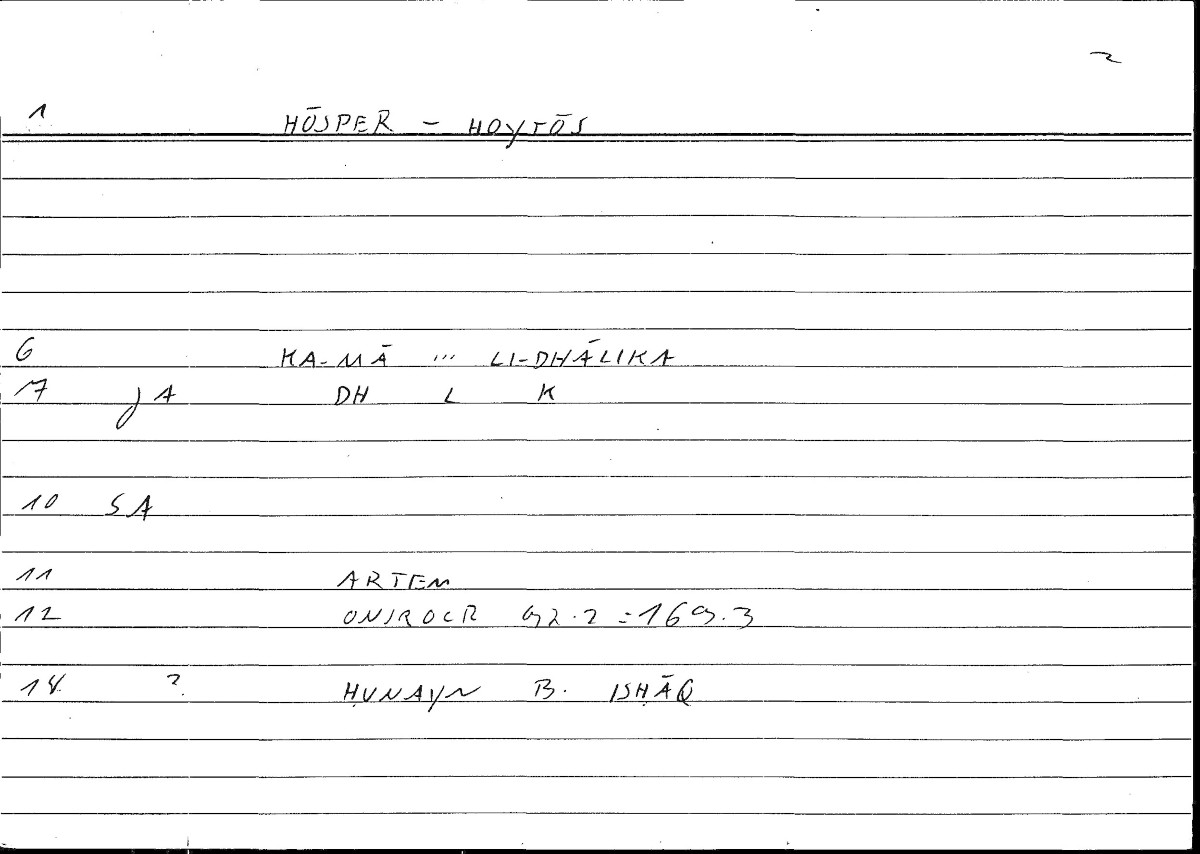 2
1 HŌSPER – HOYTŌS
6 KA-MĀ ... LI-DHĀLIKA
7 JA DH L K
10 SA
11 ARTEM
12 ONIROCR 92.2 = 169.3
14 ? ḤUNAYN B. ISḤĀQ